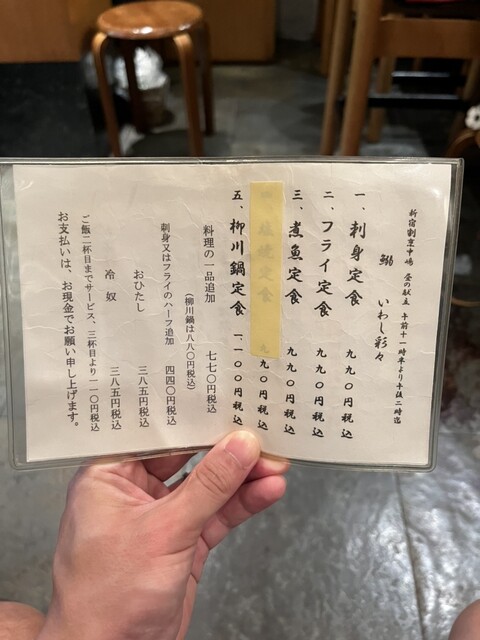 新宿割烹中嶋 昼の献立 午前十一時半より午後二時迄
鰯 いわし彩々
一、刺身定食 九九〇円税込
二、フライ定食 九九〇円税込
三、煮魚定食 九九〇円税込
塩焼定食 九九〇円税込
五、柳川鍋定食 一、一〇〇円税込
料理の一品追加 七七〇円税込
（柳川鍋は八八〇円税込）
刺身又はフライのハーフ追加 四四〇円税込
おひたし 三八五円税込
冷奴 三八五円税込
ご飯二杯までサービス、三杯目より一一〇円税込
お支払いは、お現金でお願い申し上げます。